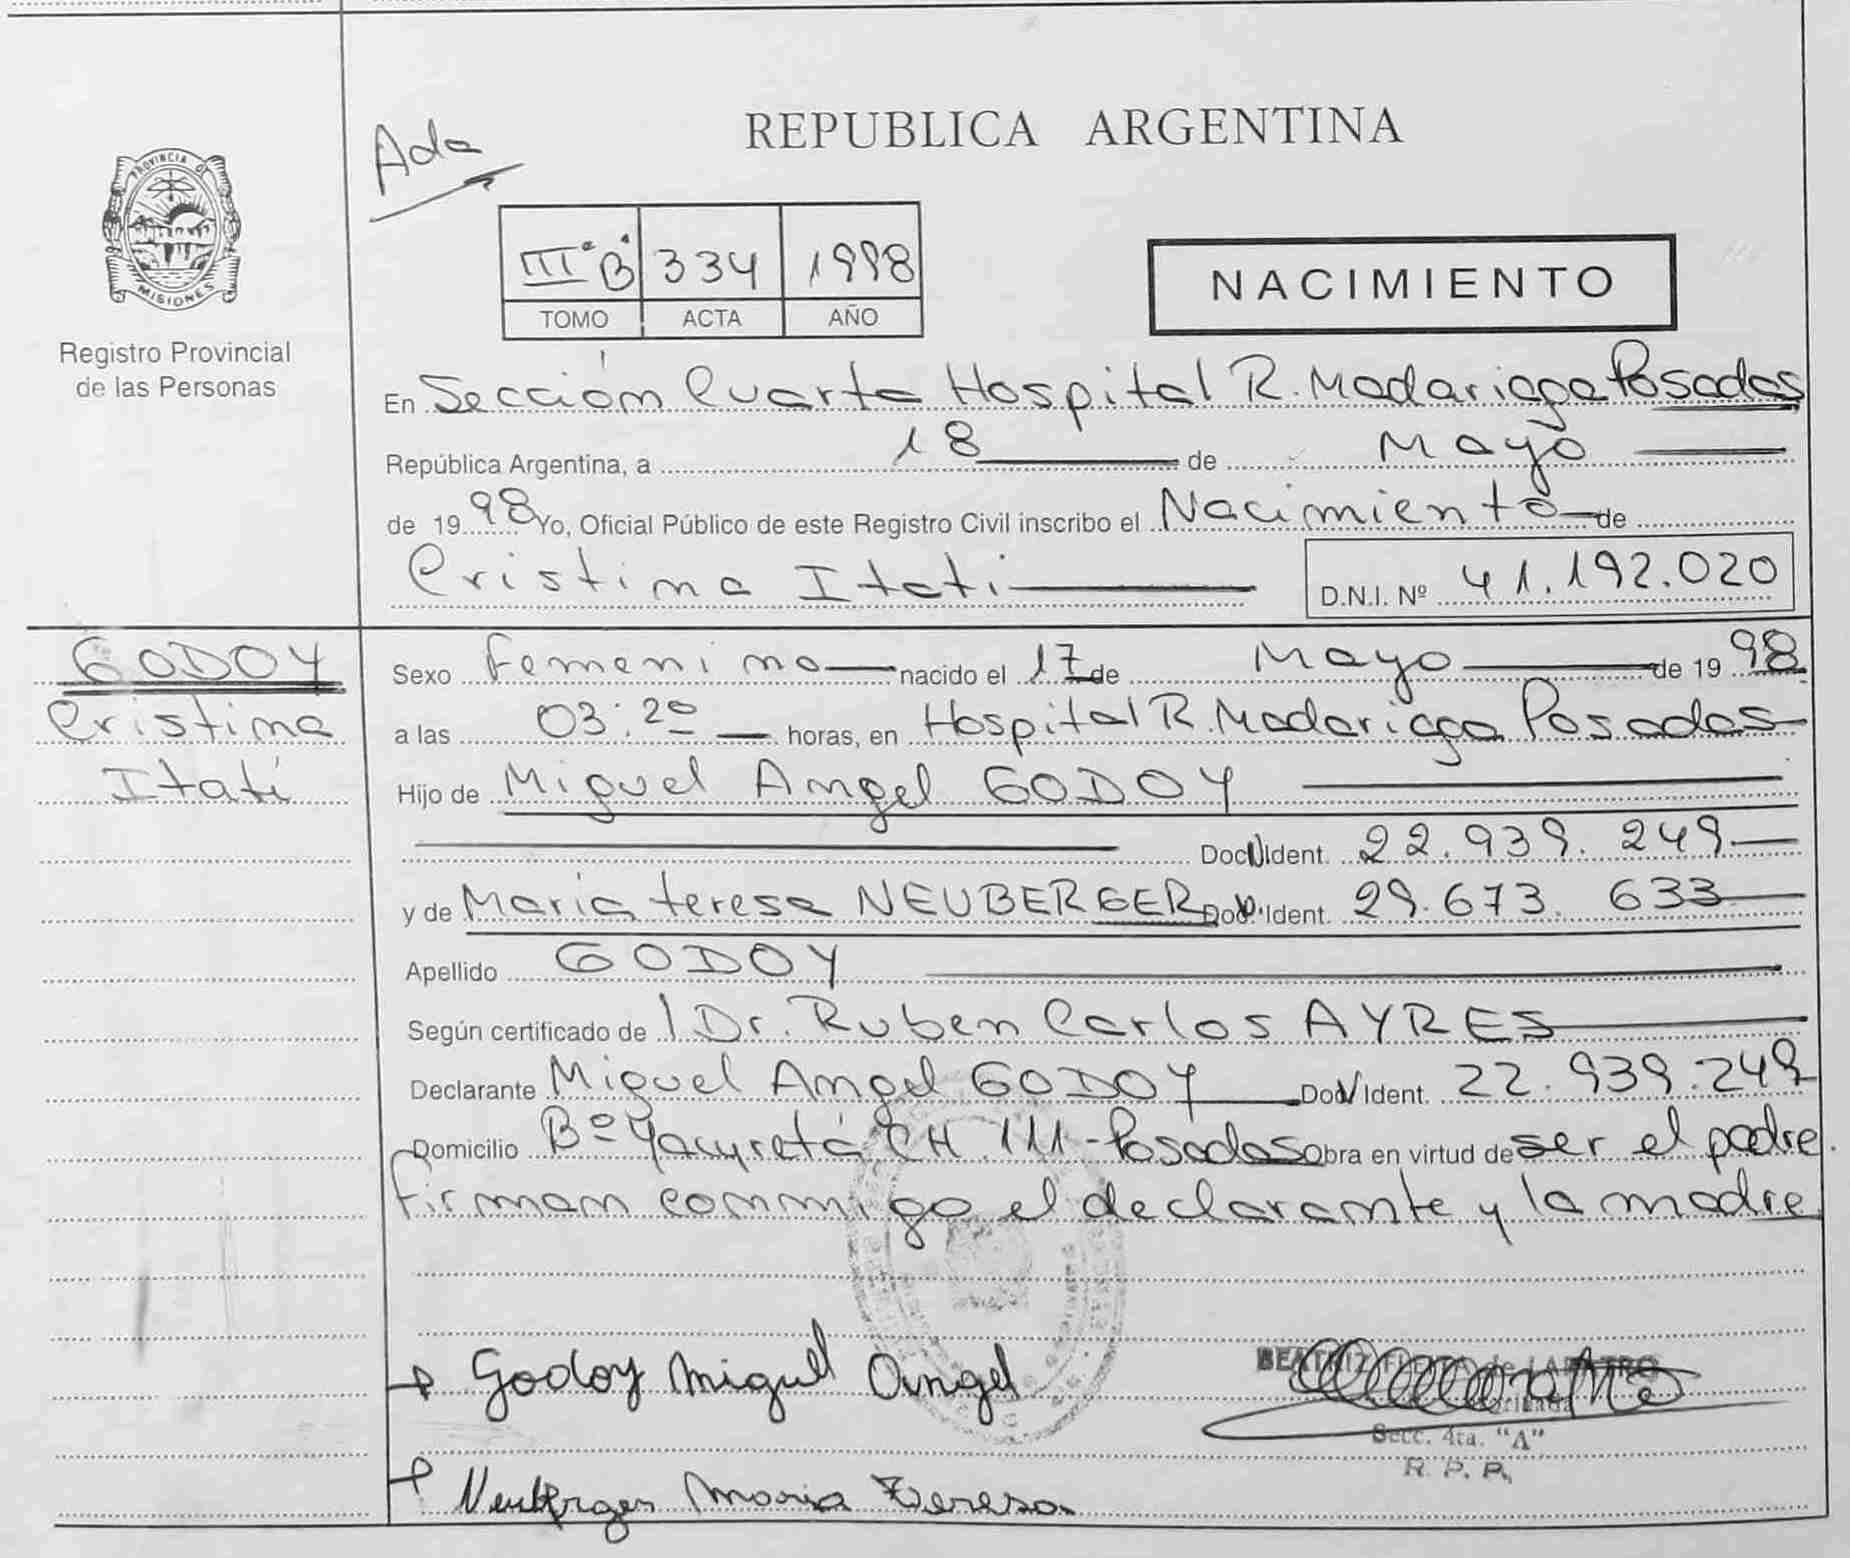 REPUBLICA ARGENTINA
Ada
PROVINCIA DE
MISIONES
Registro Provincial
de las Personas
IIIº "B" 334 1998
TOMO ACTA AÑO
NACIMIENTO
En Sección Cuarta Hospital R. Madariaga Posadas
República Argentina, a 18 de Mayo
de 1998 Yo, Oficial Público de este Registro Civil inscribo el Nacimiento de
Cristina Itati D.N.I. Nº 41.192.020
GODOY
Cristina
Itatí
Sexo Femenino nacido el 17 de Mayo de 1998
a las 03:20 horas, en Hospital R. Madariaga Posadas
Hijo de Miguel Angel GODOY
Doc. Ident. 22.939.249
y de María teresa NEUBERGER Doc. Ident. 29.673.633
Apellido GODOY
Según certificado de Dr. Ruben Carlos AYRES
Declarante Miguel Angel GODOY Doc. Ident. 22.939.249
Domicilio Bº Yacyretá CH 111 - Posadas Obra en virtud de ser el padre.
Firman conmigo el declarante y la madre
Godoy Miguel Angel
BEATRIZ de
Secc. 4ta. "A"
R. P. P.
Neuberger Maria Teresa